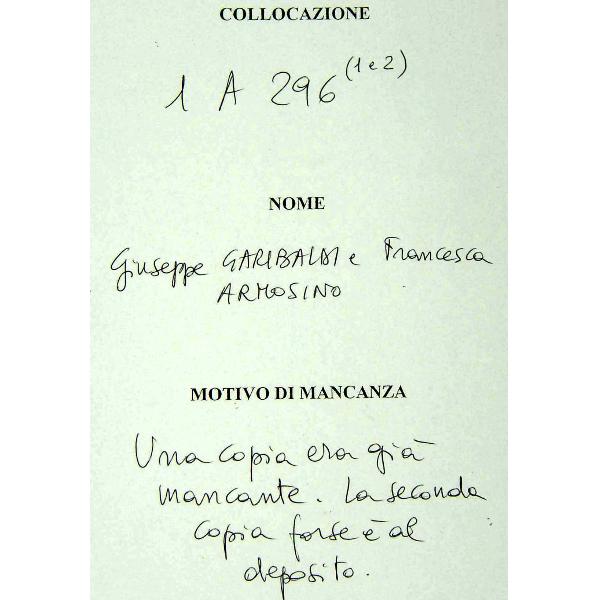 COLLOCAZIONE
1 A 296 (1 e 2)
NOME
Giuseppe GARIBALDI e Francesca
ARMOSINO
MOTIVO DI MANCANZA
Una copia era già
mancante. La seconda
copia forse è al
deposito.